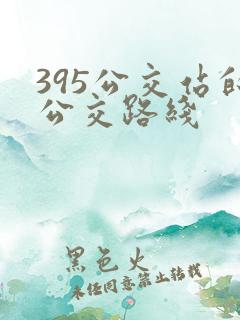 395公交站的
公交路线
黑色火
未经同意禁止转载